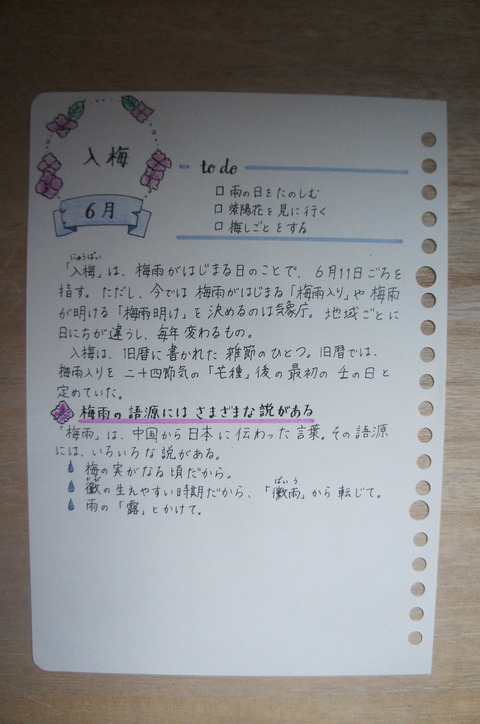 入梅
6月
to do
□ 雨の日をたのしむ
□ 紫陽花を見に行く
□ 梅しごとをする
にゅうばい
「入梅」は、梅雨がはじまる日のことで、6月11日ごろを
指す。ただし、今では梅雨がはじまる「梅雨入り」や梅雨
が明ける「梅雨明け」を決めるのは気象庁。地域ごとに
日にちが違うし、毎年変わるもの。
入梅は、旧暦に書かれた雑節のひとつ。旧暦では、
梅雨入りを二十四節気の「芒種」後の最初の壬の日と
定めていた。
梅雨の語源にはさまざまな説がある
「梅雨」は、中国から日本に伝わった言葉。その語源
には、いろいろな説がある。
梅の実がなる頃だから。
かび ばいう
黴の生えやすい時期だから、「黴雨」から転じて。
雨の「露」とかけて。